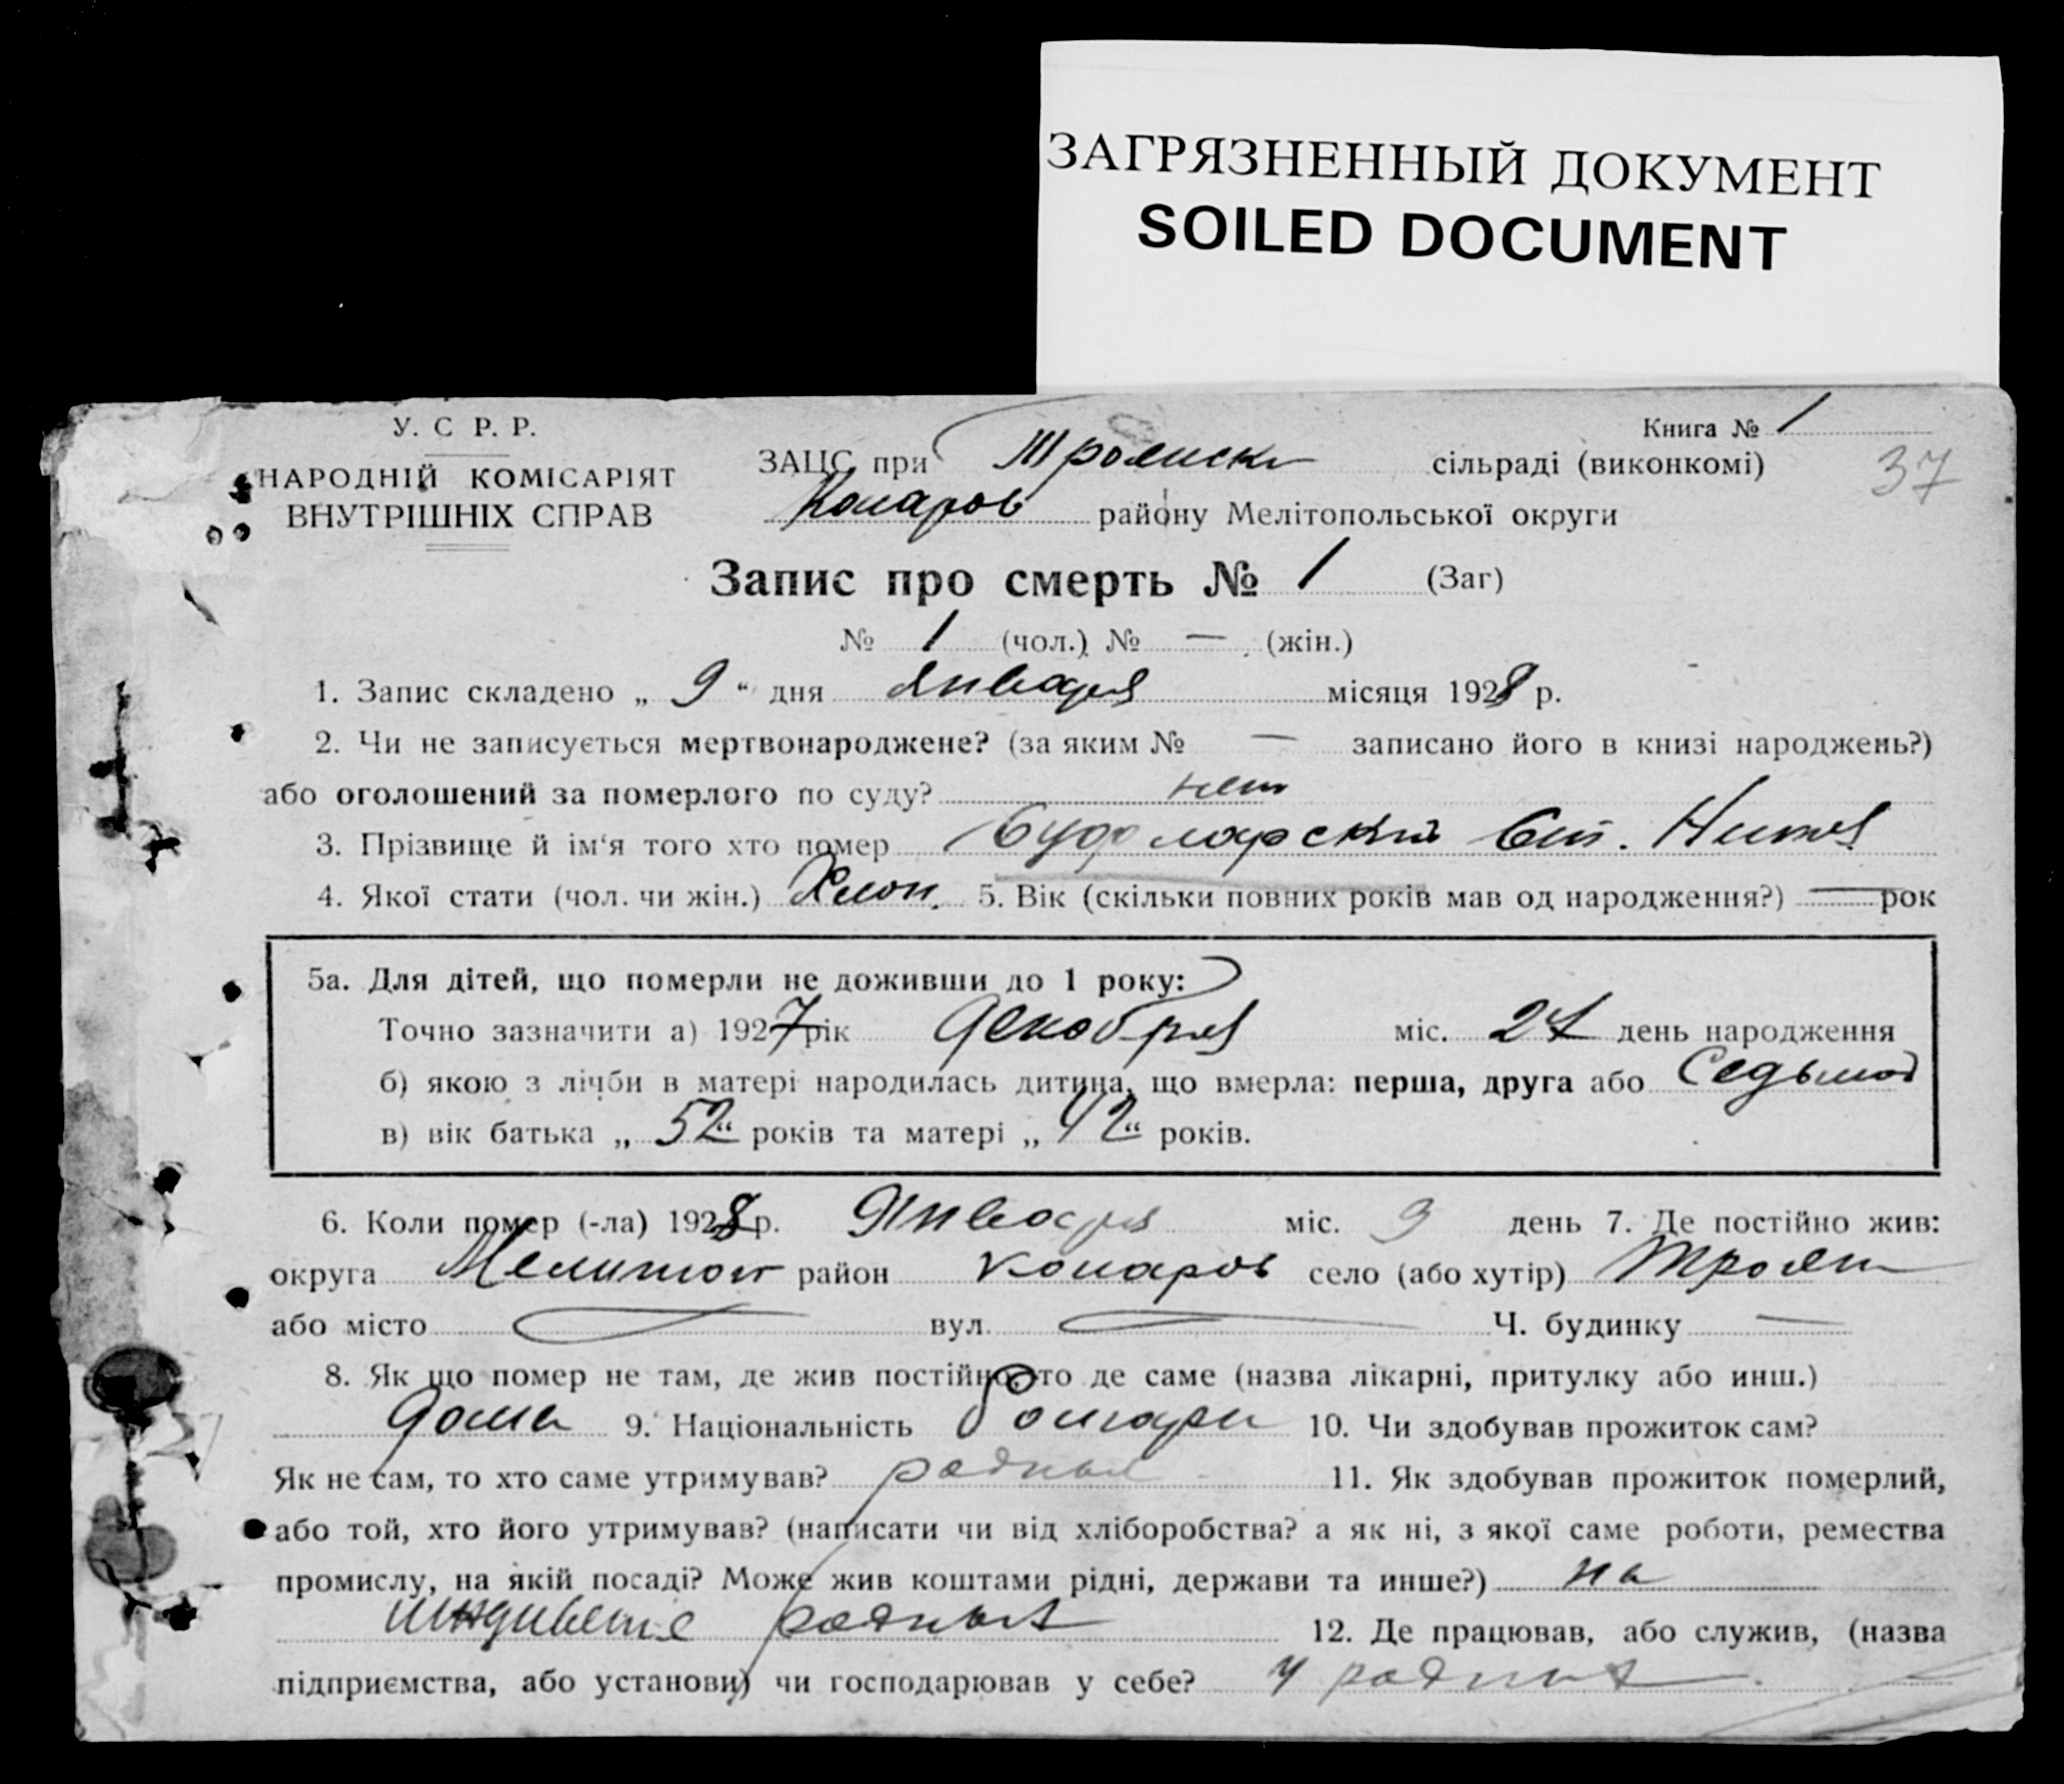 ЗАГРЯЗНЕННЫЙ ДОКУМЕНТ
SOILED DOCUMENT
У. С Р. Р.
НАРОДНІЙ КОМІСАРІЯТ
ВНУТРІШНІХ СПРАВ
Книга № 1
37
ЗАЦС при Троянск сільраді (виконкомі)
району Мелітопольської округи
Запис про смерть № 1 (Заг)
№ 1 (чол.) № — (жін.)
1. Запис складено „ 9 “ дня января місяця 1928 р.
2. Чи не записується мертвонароджене? (за яким № — записано його в книзі народжень?)
або оголошений за померлого по суду? нет
3. Прізвище й ім‘я того хто помер
4. Якої стати (чол. чи жін.) 5. Вік (скільки повних років мав од народження?) — рок
5а. Для дітей, що померли не доживши до 1 року:
Точно зазначити а) 1927 рік Декобря міс. день народження
б) якою з лічби в матері народилась дитина, що вмерла: перша, друга або Седьмой
в) вік батька „ 52 “ років та матері „ 42 “ років.
6. Коли помер (-ла) 1928 р. Января міс. 9 день 7. Де постійно жив:
округа Мелитоп район село (або хутір) Троян
або місто — вул. — Ч. будинку —
8. Як що помер не там, де жив постійно, то де саме (назва лікарні, притулку або инш.)
дома 9. Національність 10. Чи здобував прожиток сам?
Як не сам, то хто саме утримував? родные 11. Як здобував прожиток померлий,
або той, хто його утримував? (написати чи від хліборобства? а як ні, з якої саме роботи, ремества
промислу, на якій посаді? Може жив коштами рідні, держави та инше?) на
родных 12. Де працював, або служив, (назва
підприємства, або установи) чи господарював у себе? у родных